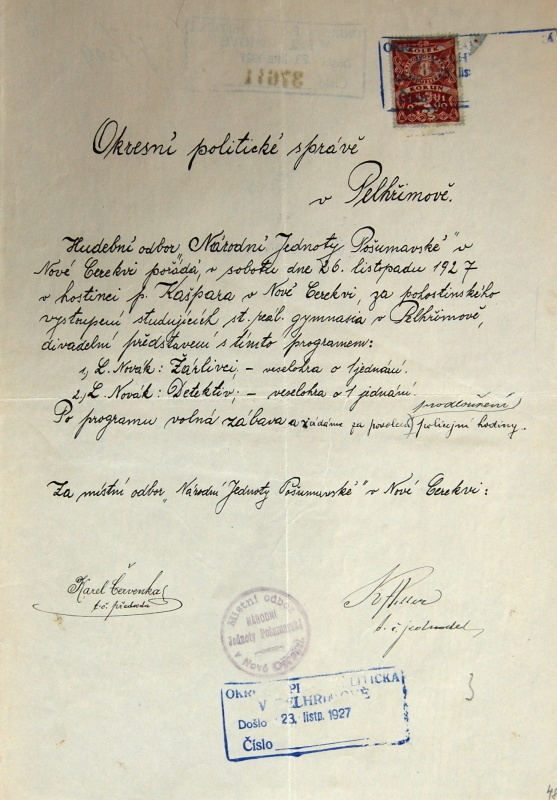 37611
KOLEK
8
KORUN
Okresní politické správě
v Pelhřimově.
Hudební odbor „Národní Jednoty Pošumavské" v
Nové Cerekvi pořádá, v sobotu dne 26. listopadu 1927
v hostinci p. Kašpara v Nové Cerekvi, za pohostinského
vystoupení studujících st. real. gymnasia v Pelhřimově,
divadelní představení s tímto programem:
1, L. Novák: Žárlivci, - veselohra o 1 jednání.
2, L. Novák: Detektiv, - veselohra o 1 jednání.
prodloužení
Po programu volná zábava a žádáme za povolení policejní hodiny.
Za místní odbor „Národní Jednoty Pošumavské" v Nové Cerekvi:
Karel Červenka
t.č. předseda
t.č. jednatel
Místní odbor
NÁRODNÍ
Jednoty Pošumavské
v Nové
V PELHŘIMOVĚ
Došlo 23. listp. 1927
Číslo
3